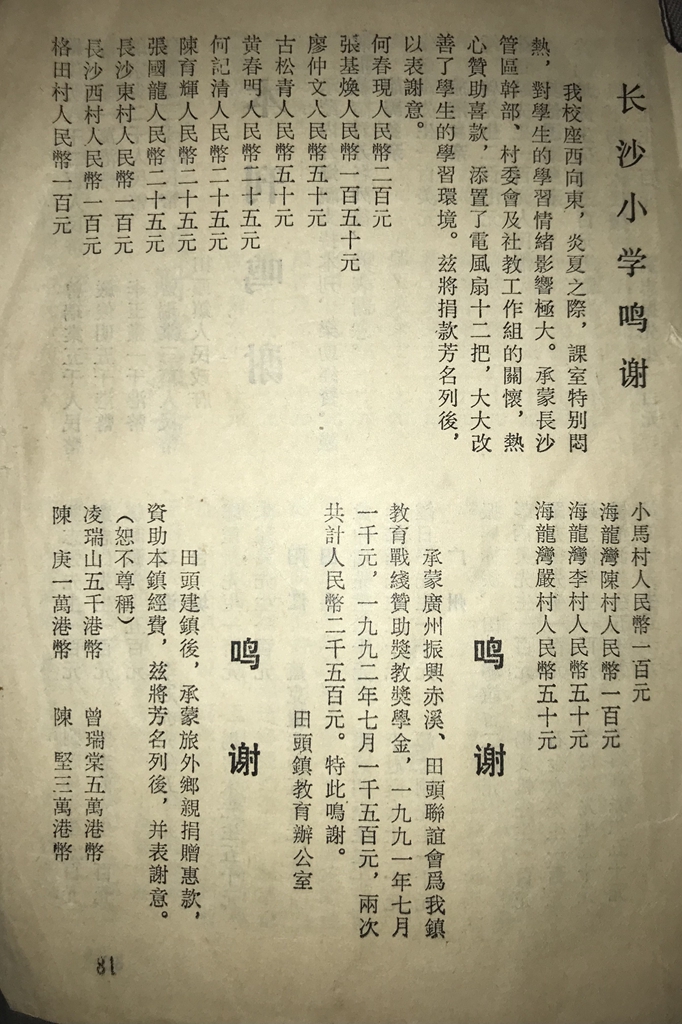 长沙小学鸣谢
我校座西向東，炎夏之際，課室特别悶
熱，對學生的學習情緒影響極大。承蒙長沙
管區幹部、村委會及社教工作組的關懷，熱
心贊助喜款，添置了電風扇十二把，大大改
善了學生的學習環境。兹將捐款芳名列後，
以表謝意。
何春現人民幣二百元
張基煥人民幣一百五十元
廖仲文人民幣五十元
古松青人民幣五十元
黄春明人民幣二十五元
何記清人民幣二十五元
陳育輝人民幣二十五元
張國龍人民幣二十五元
長沙東村人民幣一百元
長沙西村人民幣一百元
格田村人民幣一百元
小馬村人民幣一百元
海龍灣陳村人民幣一百元
海龍灣李村人民幣五十元
海龍灣嚴村人民幣五十元
鸣谢
承蒙廣州振興赤溪、田頭聯誼會爲我鎮
教育戰綫贊助獎教獎學金，一九九一年七月
一千元，一九九二年七月一千五百元，兩次
共計人民幣二千五百元。特此鳴謝。
田頭鎮教育辦公室
鸣谢
田頭建鎮後，承蒙旅外鄉親捐贈惠款，
資助本鎮經費，兹將芳名列後，并表謝意。
（恕不尊稱）
凌瑞山五千港幣 曾瑞棠五萬港幣
陳 庚一萬港幣 陳 堅三萬港幣
81